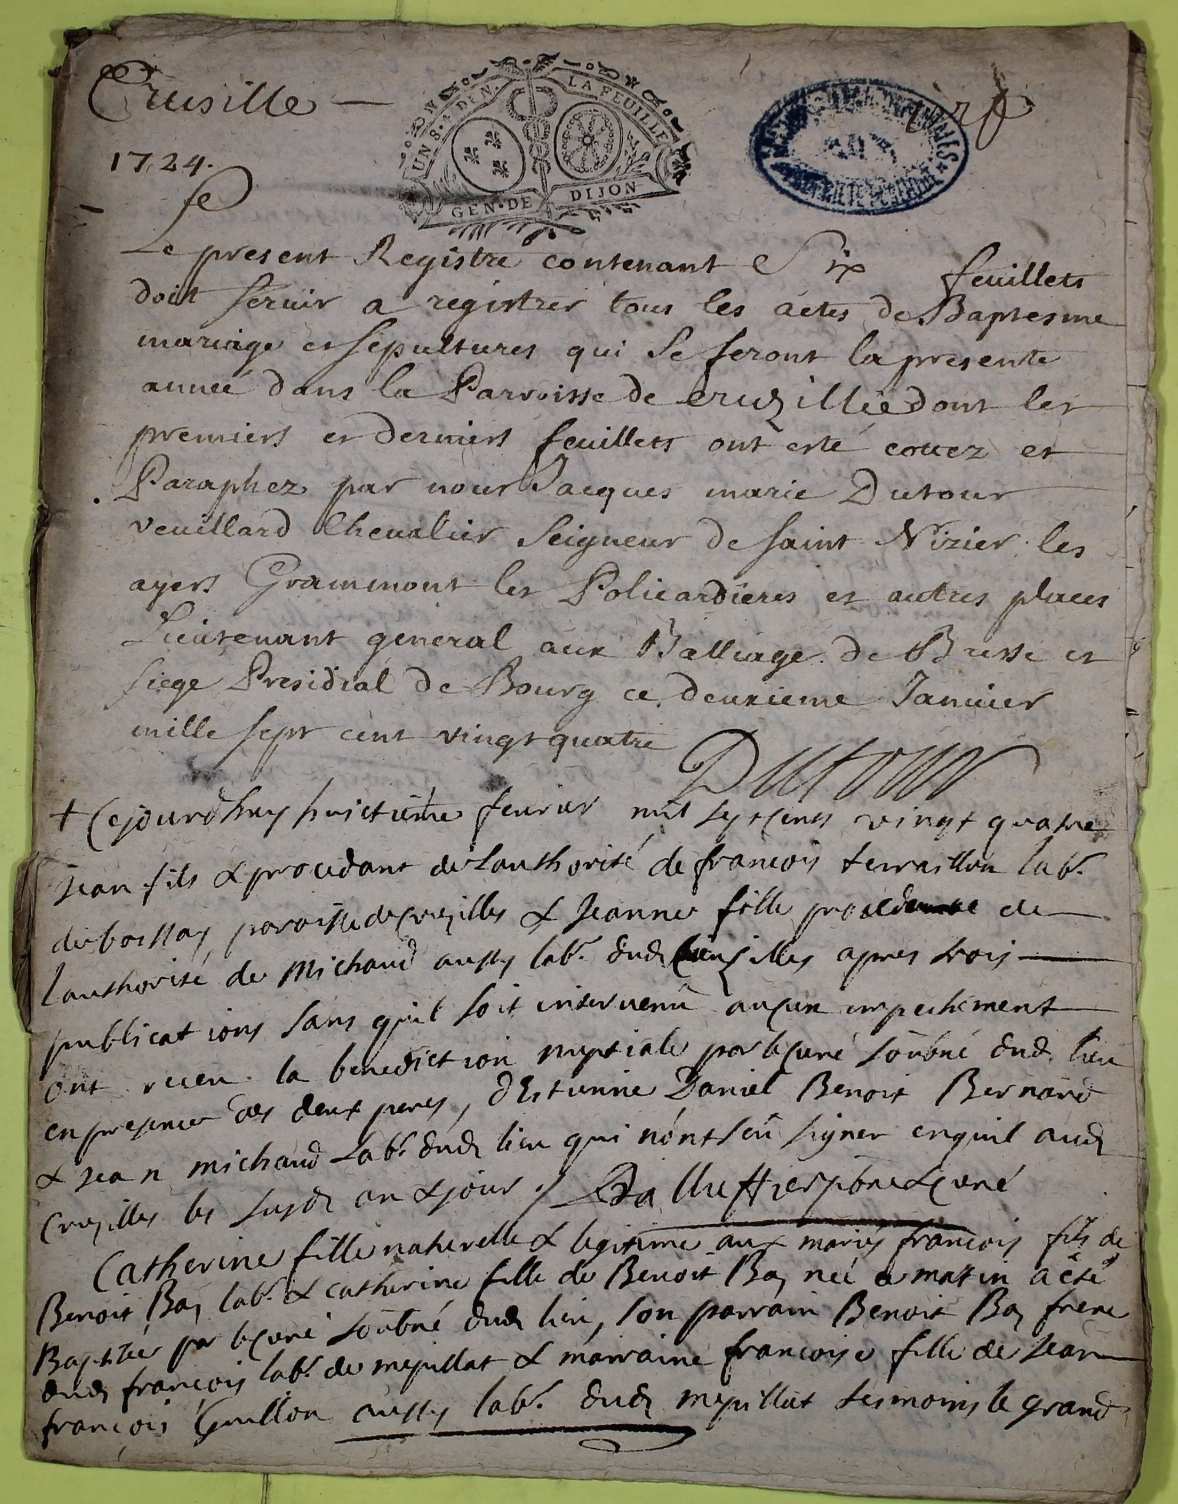 Crusille
UN S. 4. DEN. LA FEUILLE
GEN. DE DIJON
1724.
Le present Registre contenant Six feuillets
doit servir a registrer tous les actes de Baptesme
mariage et sepultures qui se feront la presente
année dans la Parroisse de cruzillie dont les
premiers et derniers feuillets ont esté cottez et
Paraphez par nous Jacques marie Dutour
veuillard Chevalier Seigneur de saint Nizier les
ayers Grammont les Policardieres et autres places
Lieutenant general aux Balliage de Bresse et
siege Presidial de Bourg ce deuxieme Janvier
mille sept cent vingt quatre
Dutour
+ Cejourdhuy huictieme fevrier mil sept cents vingt quatre
Jean fils & procedant de lauthorité de françois terraillon labr.
de bossay paroisse de cruzilles & Jeanne fille procedante de
lauthorité de Michaud aussy labr. dud cruzilles apres trois
publications sans quil soit intervenu aucun empechement
ont receu la benediction nuptiale par le curé soubné dud lieu
en presence des deux peres, dEstienne Daniel Benoit Bernard
& Jean michaud Labr. dud lieu qui nont sçu signer enquil aud
cruzilles les susd an & jour ./ curé
Catherine fille naturelle & legitime aux mariés françois fils de
Benoit Bay labr. & catherine fille de Benoit Bay née a matin a été
Baptizée par le curé soubné dud lieu, son parrain Benoit Bay frere
dud françois labr. de mepillat & marraine francoise fille de Jean
françois Guillon aussy labr. dud mepillat tesmoins le grand